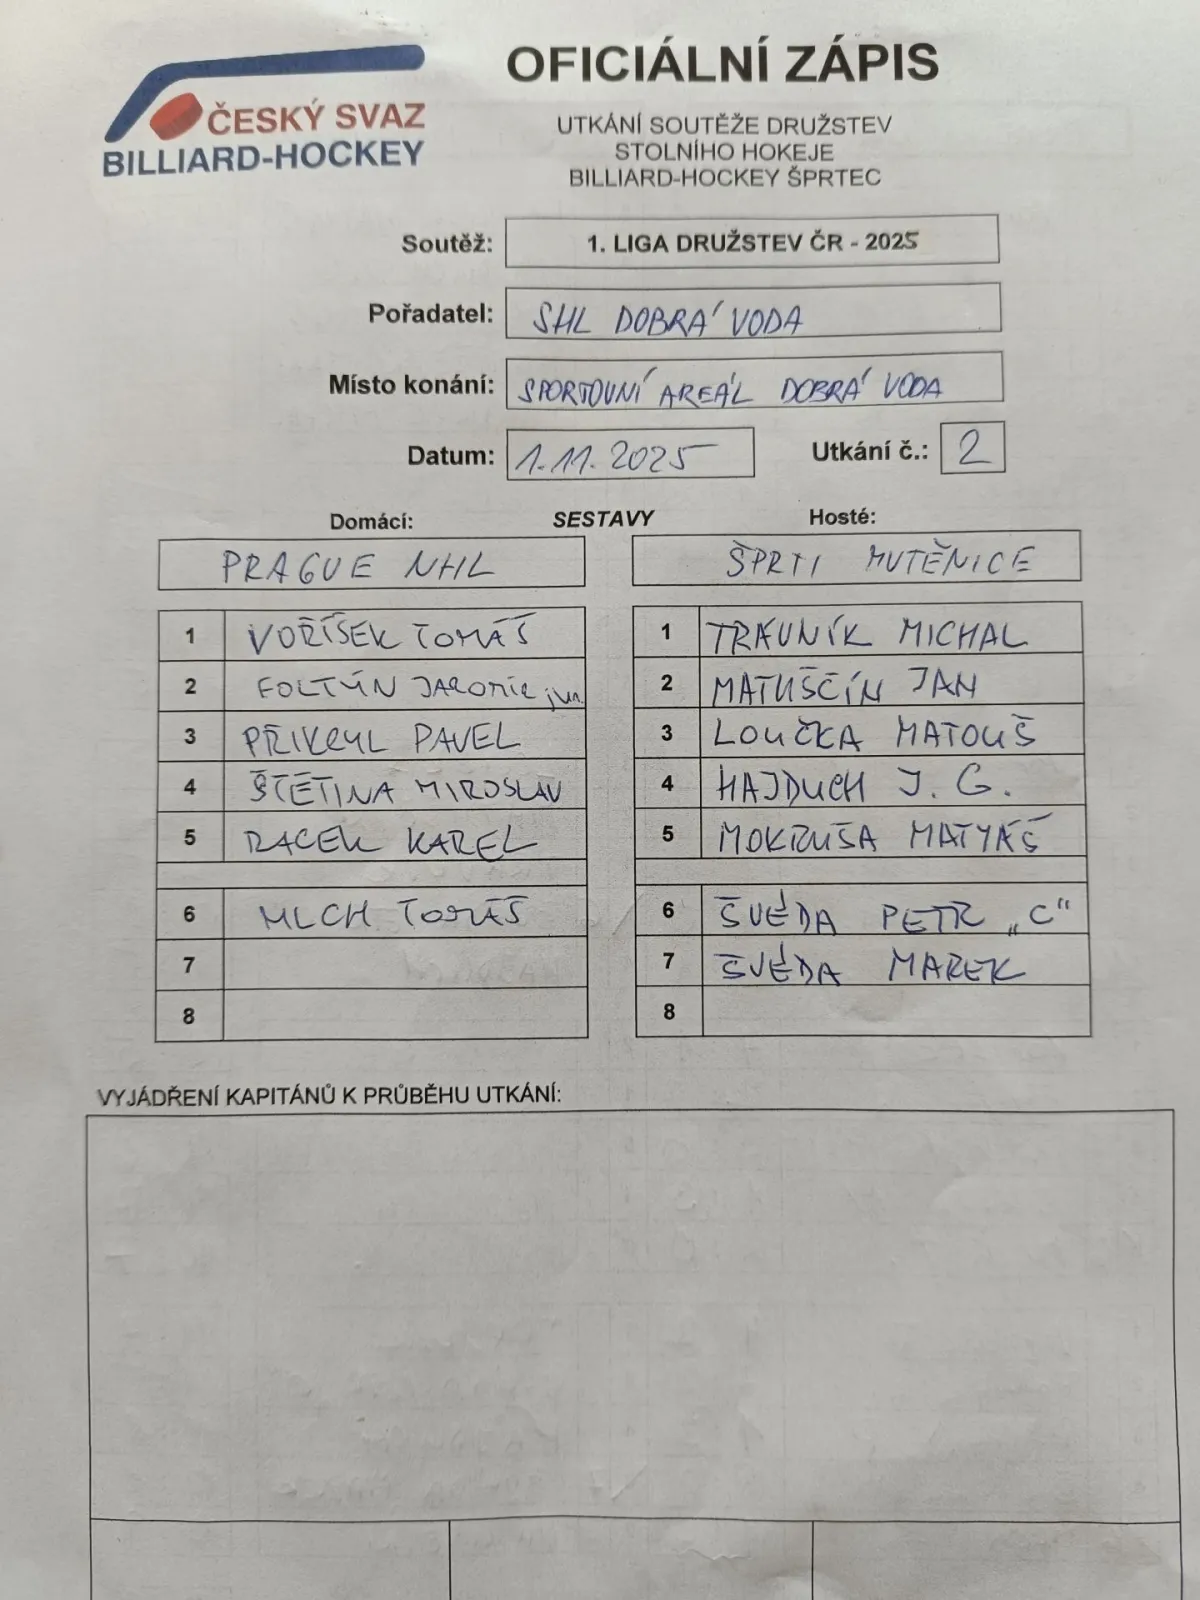 OFICIÁLNÍ ZÁPIS
ČESKÝ SVAZ
BILLIARD-HOCKEY
UTKÁNÍ SOUTĚŽE DRUŽSTEV
STOLNÍHO HOKEJE
BILLIARD-HOCKEY ŠPRTEC
Soutěž: 1. LIGA DRUŽSTEV ČR - 2025
Pořadatel: SHL DOBRÁ VODA
Místo konání: SPORTOVNÍ AREÁL DOBRÁ VODA
Datum: 1.11.2025 Utkání č.: 2
Domácí: SESTAVY Hosté:
PRAGUE NHL ŠPRTI MUTĚNICE
1 VOŘÍŠEK TOMÁŠ 1 TRÁVNÍK MICHAL
2 FOLTÝN JAROMÍR jun. 2 MATUŠČÍN JAN
3 PŘIKRYL PAVEL 3 LOUČKA MATOUŠ
4 ŠTĚTINA MIROSLAV 4 HAJDUCH J. G.
5 RACEK KAREL 5 MOKRUŠA MATYÁŠ
6 MLCH TOMÁŠ 6 ŠVÉDA PETR „C“
7 7 ŠVÉDA MAREK
8 8
VYJÁDŘENÍ KAPITÁNŮ K PRŮBĚHU UTKÁNÍ: